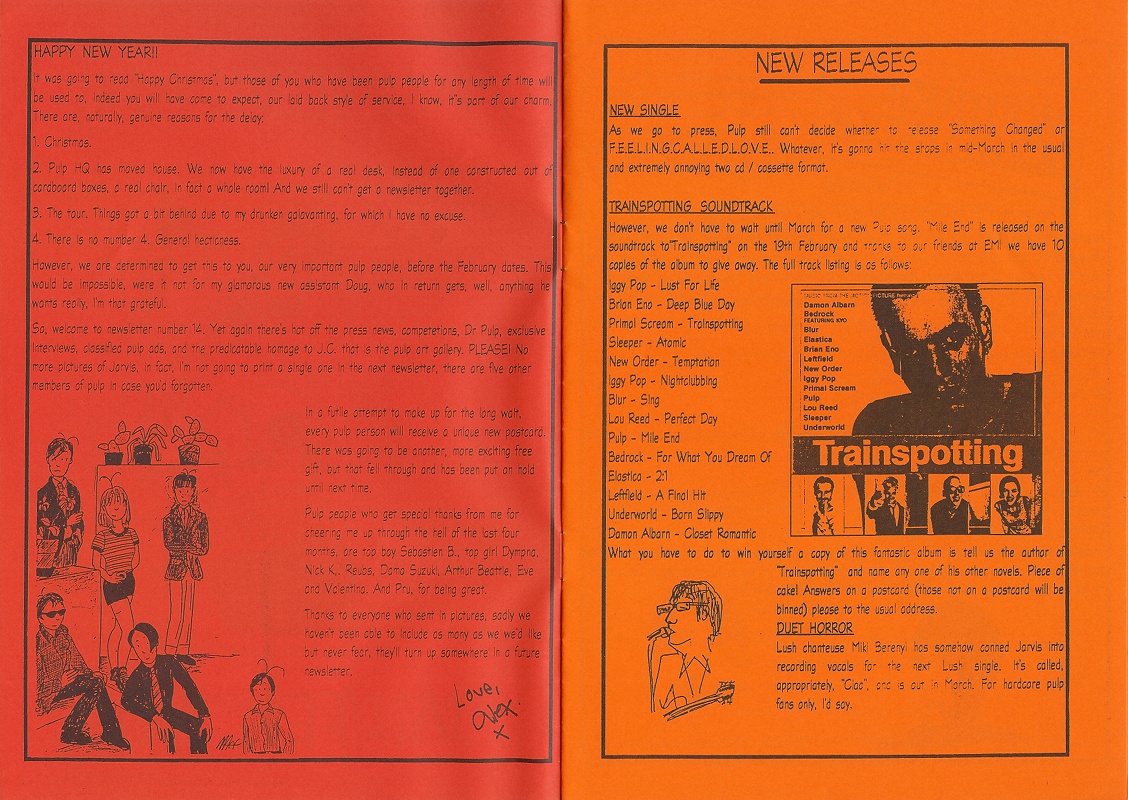 HAPPY NEW YEAR!!
It was going to read "Happy Christmas", but those of you who have been pulp people for any length of time will
be used to, indeed you will have come to expect, our laid back style of service, I know, it's part of our charm.
There are, naturally, genuine reasons for the delay:
1. Christmas.
2. Pulp HQ has moved house. We now have the luxury of a real desk, instead of one constructed out of
cardboard boxes, a real chair, in fact a whole room! And we still can't get a newsletter together.
3. The tour. Things got a bit behind due to my drunken galavanting, for which I have no excuse.
4. There is no mumber 4. General hecticness.
However, we are determined to get this to you, our very important pulp people, before the February dates. This
would be impossible, were it not for my glamorous new assistant Doug, who in return gets, well, anything he
wants really, I'm that grateful.
So, welcome to newsletter number 14. Yet again there's hot off the press news, competetions, Dr Pulp, exclusive
interviews, classified pulp ads, and the predicatable homage to J.C. that is the pulp art gallery. PLEASE! No
more pictures of Jarvis, in fact, I'm not going to print a single one in the next newsletter, there are five other
members of pulp in case you'd forgotten.
In a futile attempt to make up for the long wait,
every pulp person will receive a unique new postcard.
There was going to be another, more exciting free
gift, but that fell through and has been put on hold
until next time.
Pulp people who get special thanks from me for
cheering me up through the hell of the last four
months, are top boy Sebastien B., top girl Dympna,
Nick K., Reubs, Damo Suzuki, Arthur Beattie, Eve
and Valentino. And Pru, for being great.
Thanks to everyone who sent in pictures, sadly we
haven't been able to include as many as we we'd like
but never fear, they'll turn up somewhere in a future
newsletter.
Love,
Alex.
x
NEW RELEASES
NEW SINGLE
As we go to press, Pulp still can't decide whether to release "Something Changed" or
F.E.E.L.I.N.G.C.A.L.L.E.D.L.O.V.E.. Whatever, it's gonna hit the shops in mid-March in the usual
and extremely annoying two cd / cassette format.
TRAINSPOTTING SOUNDTRACK
However, we don't have to wait until March for a new Pulp song. "Mile End" is released on the
soundtrack to"Trainspotting" on the 19th February and thanks to our friends at EMI we have 10
copies of the album to give away. The full track listing is as follows:
Iggy Pop - Lust For Life
Brian Eno - Deep Blue Day
Primal Scream - Trainspotting
Sleeper - Atomic
New Order - Temptation
Iggy Pop - Nightclubbing
Blur - Sing
Lou Reed - Perfect Day
Pulp - Mile End
Bedrock - For What You Dream Of
Elastica - 2:1
Leftfield - A Final Hit
Underworld - Born Slippy
Damon Albarn - Closet Romantic
MUSIC FROM THE MOTION PICTURE
Damon Albarn
Bedrock
FEATURING KYO
Blur
Elastica
Brian Eno
Leftfield
New Order
Iggy Pop
Primal Scream
Pulp
Lou Reed
Sleeper
Underworld
Trainspotting
What you have to do to win yourself a copy of this fantastic album is tell us the author of
"Trainspotting" and name any one of his other novels. Piece of
cake! Answers on a postcard (those not on a postcard will be
binned) please to the usual address.
DUET HORROR
Lush chanteuse Miki Berenyi has somehow conned Jarvis into
recording vocals for the next Lush single. It's called,
appropriately, "Ciao", and is out in March. For hardcore pulp
fans only, I'd say.